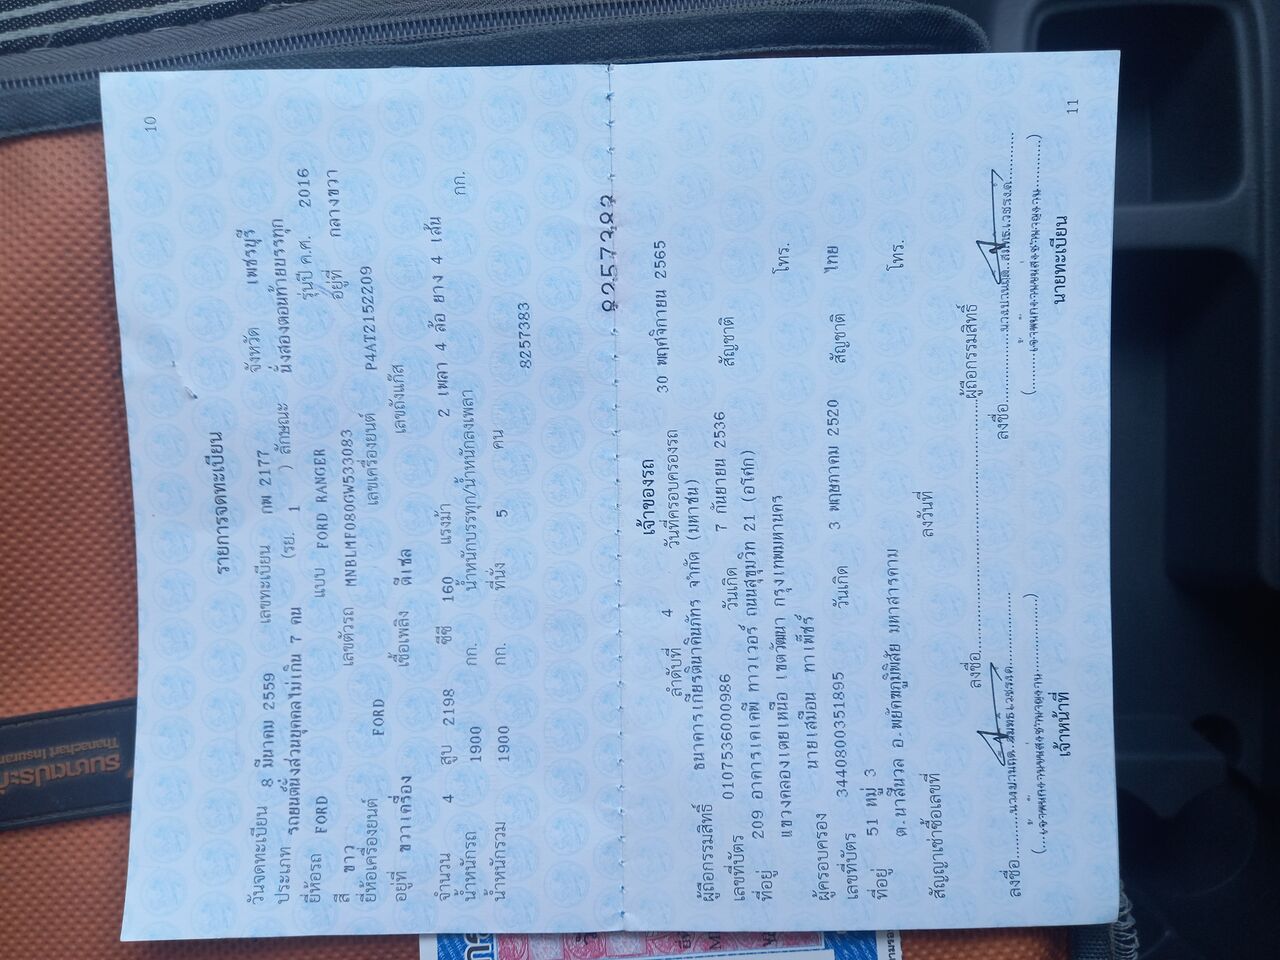 10
รายการจดทะเบียน
วันจดทะเบียน 8 มีนาคม 2559 เลขทะเบียน กพ 2177 จังหวัด เพชรบุรี
ประเภท รถยนต์นั่งส่วนบุคคลไม่เกิน 7 คน (รย. 1 ) ลักษณะ นั่งสองตอนท้ายบรรทุก
ยี่ห้อรถ FORD แบบ FORD RANGER รุ่นปี ค.ศ. 2016
สี ขาว เลขตัวรถ MNBLMF080GW533083 อยู่ที่ กลางขวา
ยี่ห้อเครื่องยนต์ FORD เลขเครื่องยนต์ P4AT2152209
อยู่ที่ ขวาเครื่อง เชื้อเพลิง ดีเซล เลขถังแก๊ส
จำนวน 4 สูบ 2198 ซีซี 160 แรงม้า 2 เพลา 4 ล้อ ยาง 4 เส้น
น้ำหนักรถ 1900 กก. น้ำหนักบรรทุก/น้ำหนักลงเพลา กก.
น้ำหนักรวม 1900 กก. ที่นั่ง 5 คน
8257383
8257383
เจ้าของรถ
ลำดับที่ 4 วันที่ครอบครองรถ 30 พฤศจิกายน 2565
ผู้ถือกรรมสิทธิ์ ธนาคารเกียรตินาคินภัทร จำกัด (มหาชน)
เลขที่บัตร 0107536000986 วันเกิด 7 กันยายน 2536 สัญชาติ
ที่อยู่ 209 อาคารเคเคพี ทาวเวอร์ ถนนสุขุมวิท 21 (อโศก)
แขวงคลองเตยเหนือ เขตวัฒนา กรุงเทพมหานคร โทร.
ผู้ครอบครอง นายเสมือน ทาเพ็ชร์
เลขที่บัตร 3440800351895 วันเกิด 3 พฤษภาคม 2520 สัญชาติ ไทย
ที่อยู่ 51 หมู่ 3
ต.นาสีนวล อ.พยัคฆภูมิพิสัย มหาสารคาม โทร.
สัญญาเช่าซื้อเลขที่ ลงวันที่
ลงชื่อ ผู้ถือกรรมสิทธิ์
ลงชื่อ
ลงชื่อ
(เจ้าพนักงานขนส่งชำนาญงาน)
(เจ้าพนักงานขนส่งชำนาญงาน)
เจ้าหน้าที่
นายทะเบียน
11
ธนชาตประกั
Thanachart Insuran